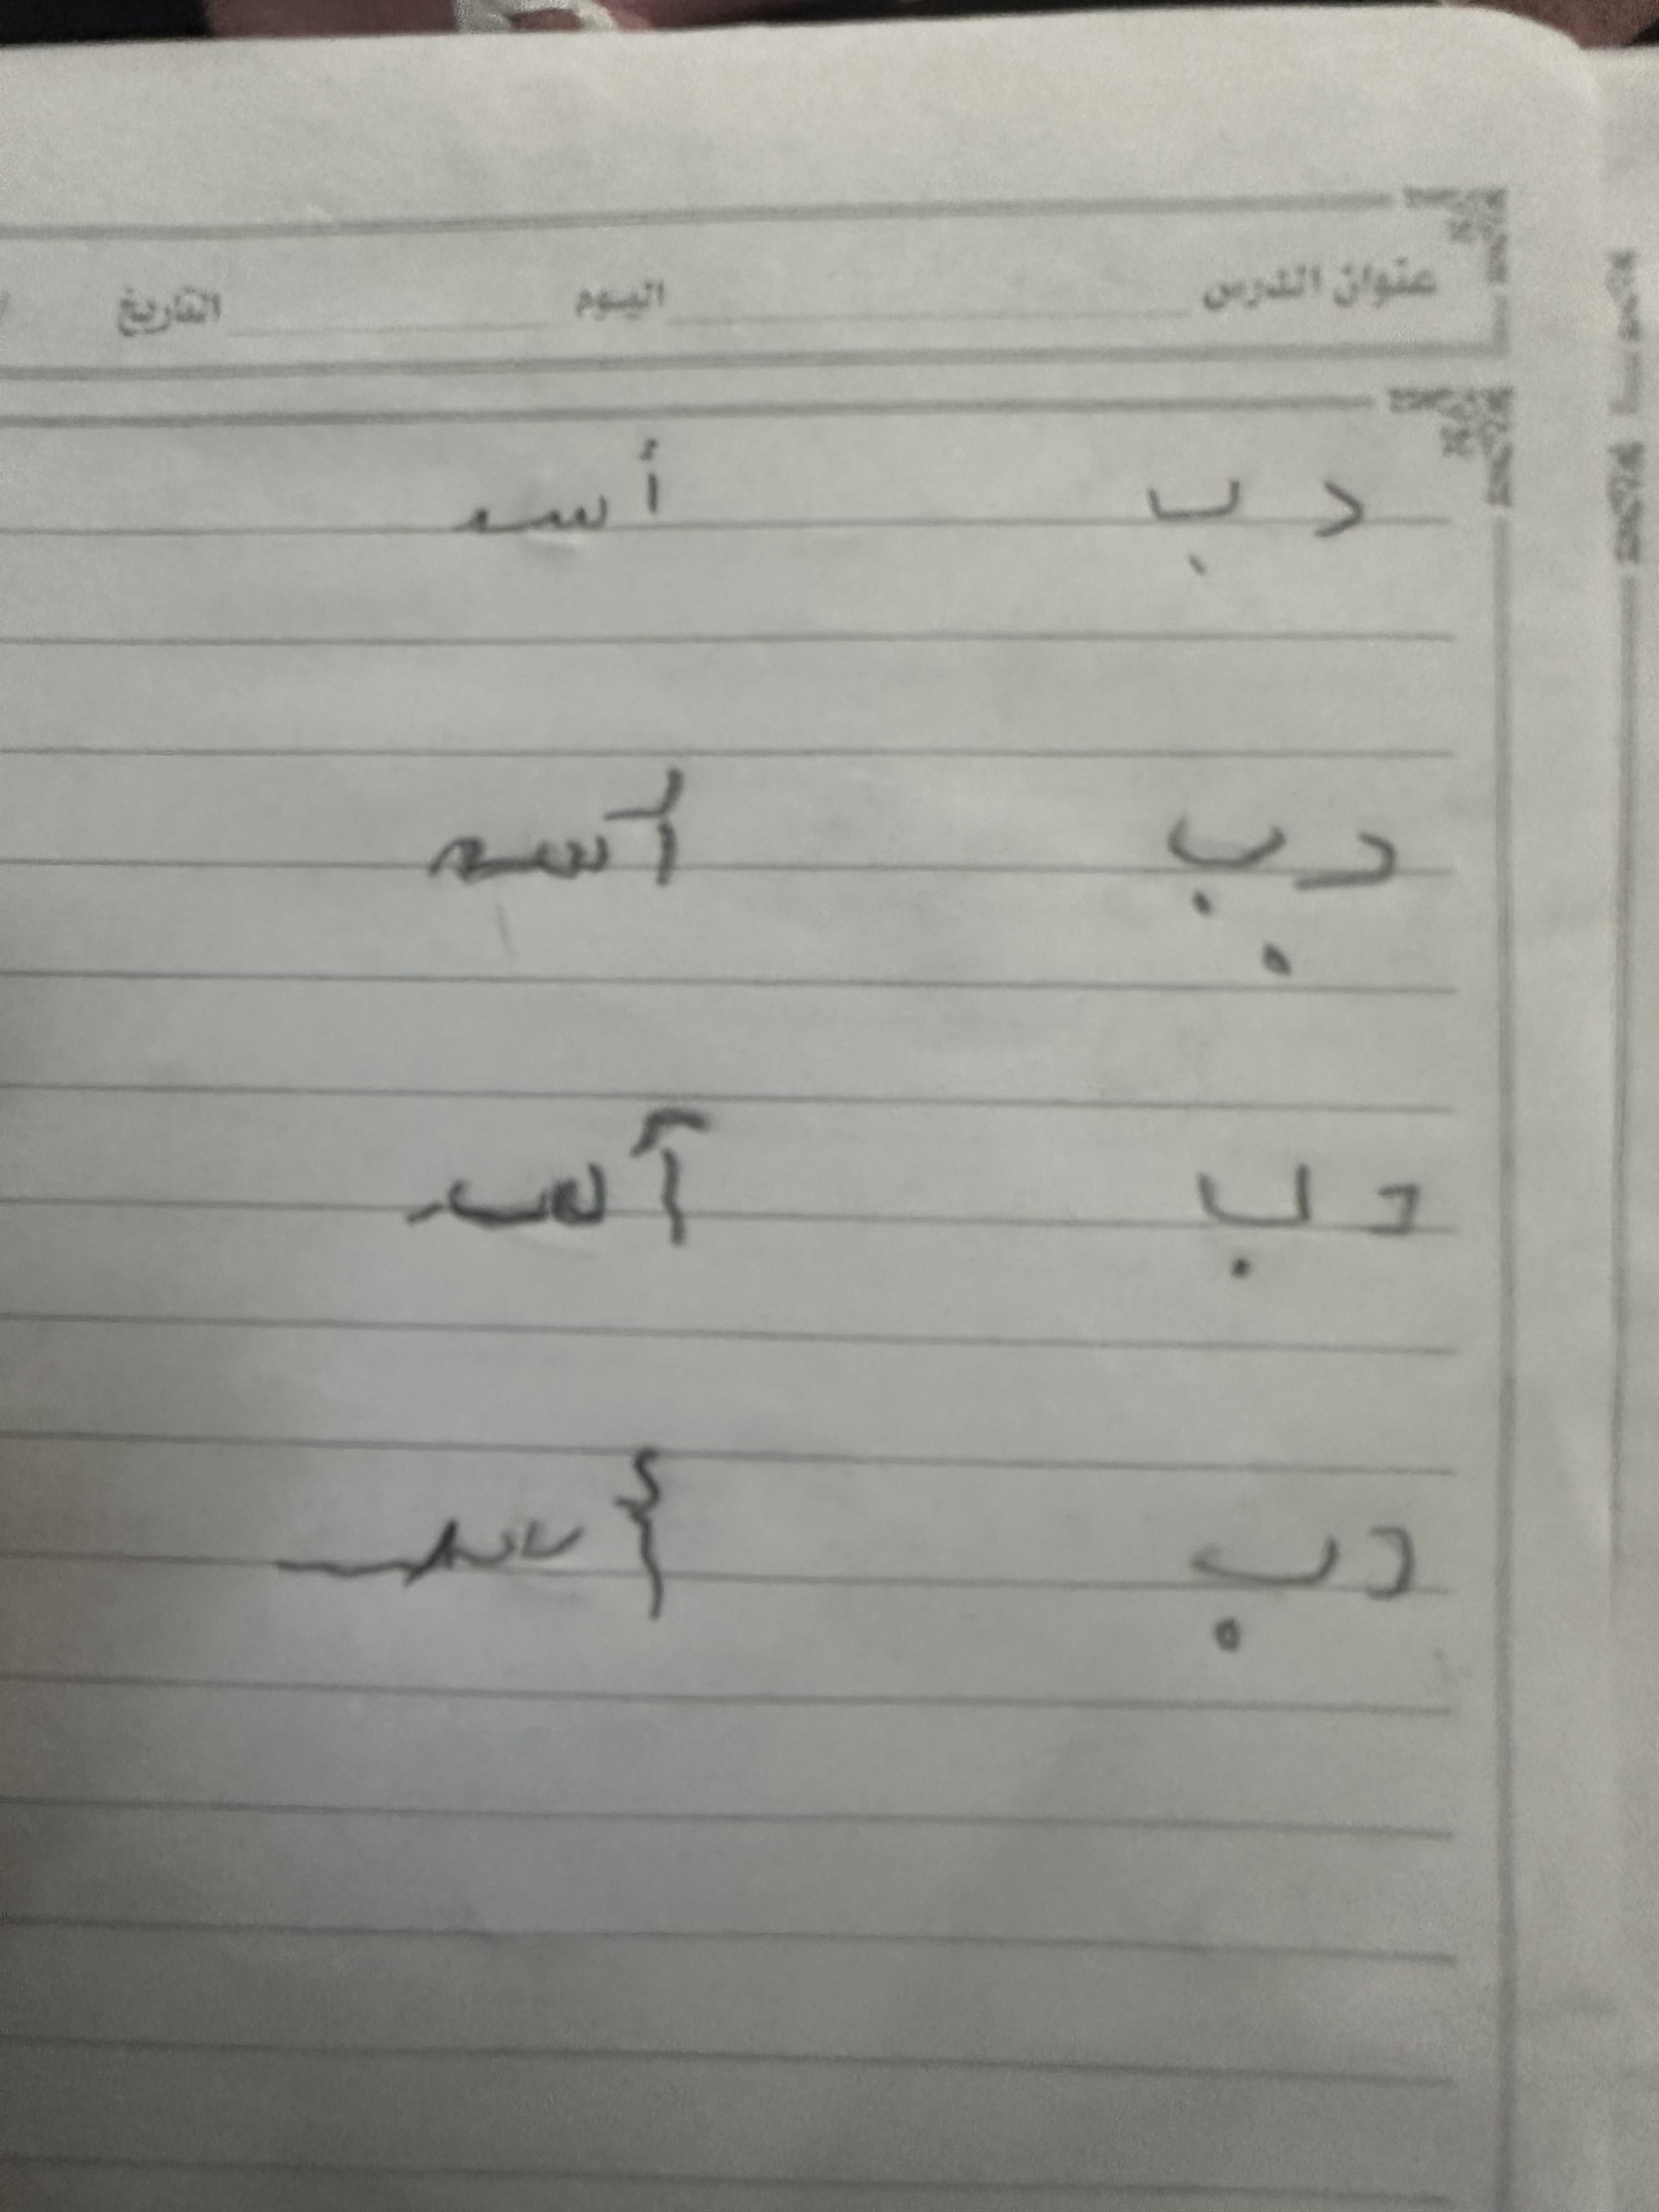 عنوان الدرس اليوم التاريخ
دب أسد
دب أسد
دب أسد
دب أسد